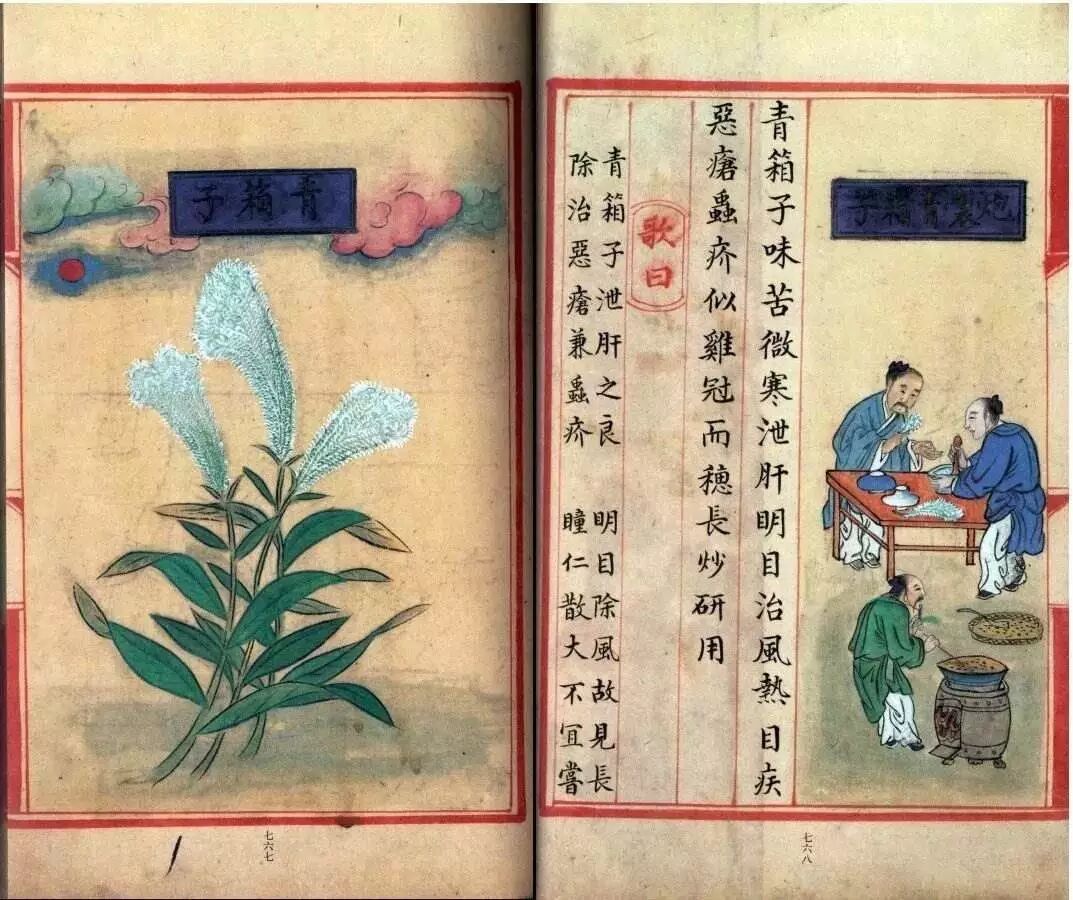 青箱子
七六七
炮製青箱子
青箱子味苦微寒泄肝明目治風熱目疾
惡瘡蟲疥似雞冠而穗長炒研用
歌曰
青箱子泄肝之良 明目除風故見長
除治惡瘡兼蟲疥 瞳仁散大不宜嘗
七六八